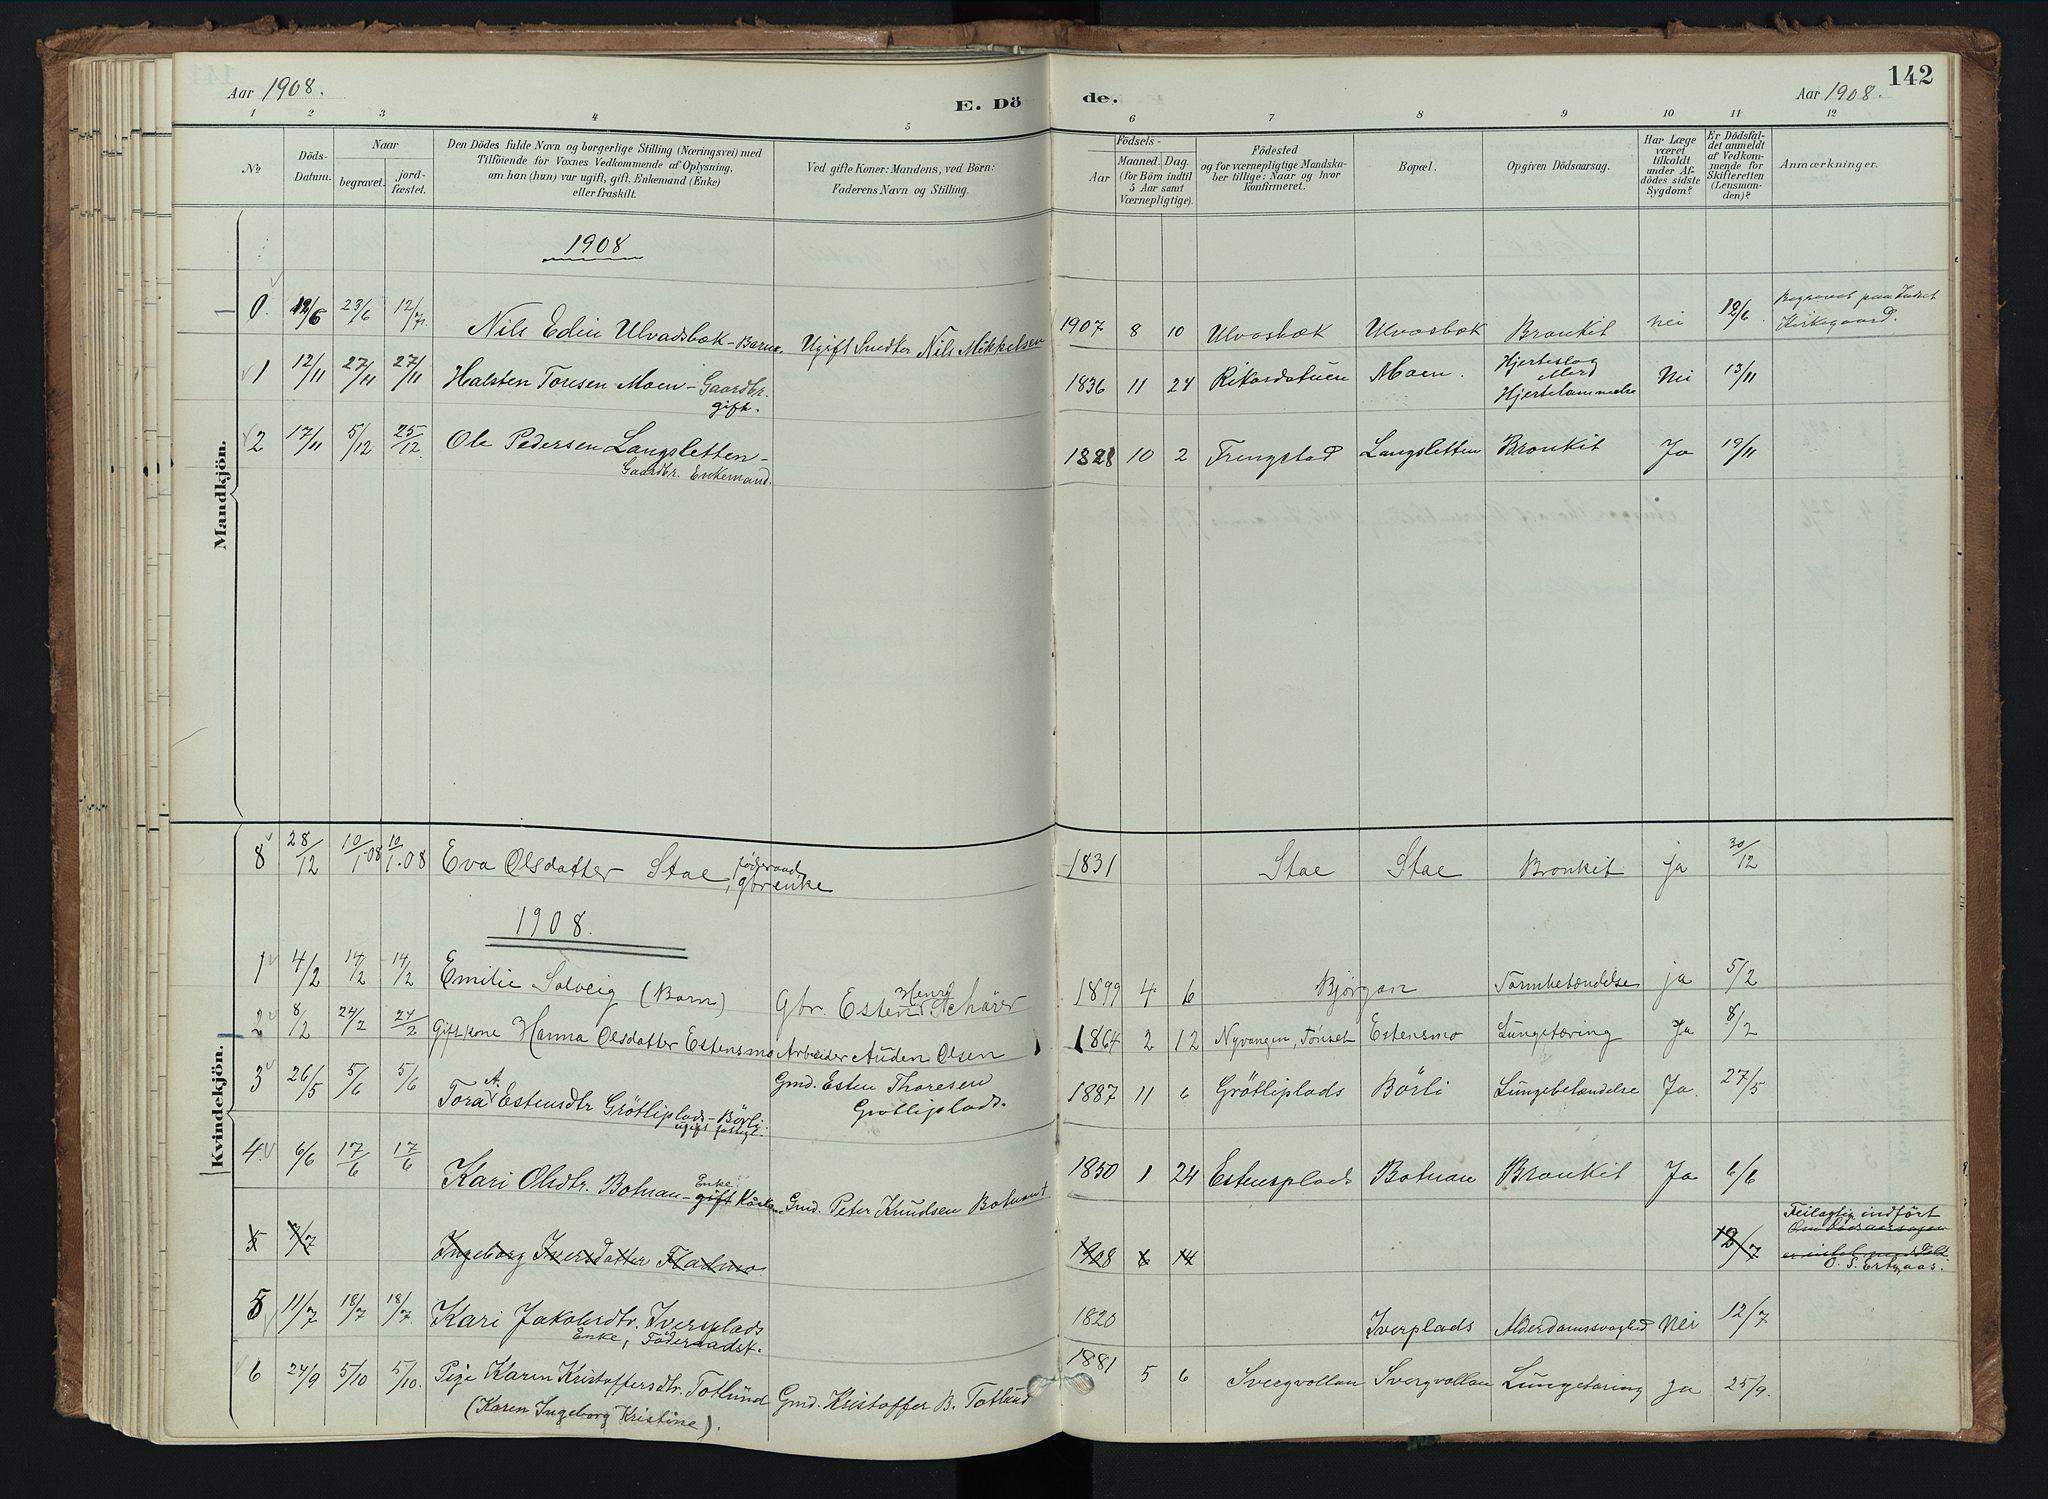 Aar 1908.
E. Dö
de.
Aar 1908.
142
1 2 3 4 5 6 7 8 9 10 11 12
No.
Döds-Datum.
Naar
begravet.
jord-fæstet.
Den Dödes fulde Navn og borgerlige Stilling (Næringsvei) med
Tilföiende for Voxnes Vedkommende af Oplysning,
om han (hun) var ugift, gift, Enkemand (Enke)
eller fraskilt.
Ved gifte Koner: Mandens, ved Börn:
Faderens Navn og Stilling.
Födsels-
Aar
Maaned. Dag.
(for Börn indtil
5 Aar samt
Værnepligtige).
Födested
og for værnepligtige Mandska-
ber tillige: Naar og hvor
konfirmeret.
Bopæl.
Opgiven Dödsaarsag.
Har Læge
været
tilkaldt
under Af-
dödes sidste
Sygdom?
Er Dödsfal-
det anmeldt
af Vedkom-
mende for
Skifteretten
(Lensman-
den)?
Anmærkninger.
Mandkjön.
1908
0. 12/6 23/6 12/7. Nils Edin Ulvadsbæk - Barn. Ugift Snedker Nils Mikkelsen 1907 8 10 Ulvosbæk Ulvosbæk Bronkit nei 12/6 Begravet paa Indset
Kirkegaard.
1 12/11 27/11 27/11 Halsten Toresen Moen - Gaardbr.
gift. 1836 11 24 Rikardstuen Moen. Hjerteslag
Hjertelammelse Nei 13/11
2 17/11 5/12 25/12 Ole Pedersen Langsletten -
Gaardbr. Enkemand. 1828 10 2 Frengstad Langsletten Bronkit Ja 19/11
Kvindekjön.
8 28/12 10/1.08 10/1.08 Eva Olsdatter Stae föderaad,
gbrenke 1831 Stae Stae Bronkit ja 30/12
1908.
1 4/2 14/2 14/2 Emilie Solveig (Barn) Gbr. Esten Henrik Schärer 1899 4 6 Bjørgan Tarmbetændelse ja 5/2
2 8/2 24/2 24/2 Gift kone Hanna Olsdatter Estensmo Arbeider Auden Olsen 1864 2 12 Nyvangen, Tønset Estensmo Lungetæring Ja 8/2
3 26/5 5/6 5/6 Tora A. Estensdtr Grötliplads - Börli
ugift fattigl. Gmd. Esten Thoresen
Grötliplads. 1887 11 6 Grötliplads Börli Lungebetændelse Ja. 27/5
4. 6/6 17/6 17/6 Kari Olsdtr. Botnan - Enke gift Gmd. Peter Knudsen Botnan † 1850 1 24 Estensplads Botnan Bronkit Ja 6/6
5 7/7 Ingeborg Iversdatter Fladmo 1908 6 14 12/7 Feilagtig indfört
5 11/7 18/7 18/7 Kari Jakobsdtr. Iversplads
Enke, Föderaadst. 1820 Iverplads Alderdomssvaghed Nei 12/7
6 24/9 5/10 5/10. Pige Karen Kristoffersdtr. Totlund Gmd. Kristoffer B. Totlund 1881 5 6 Svergvollan Svergvollan Lungetæring ja 25/9.
(Karen Ingeborg Kristine).